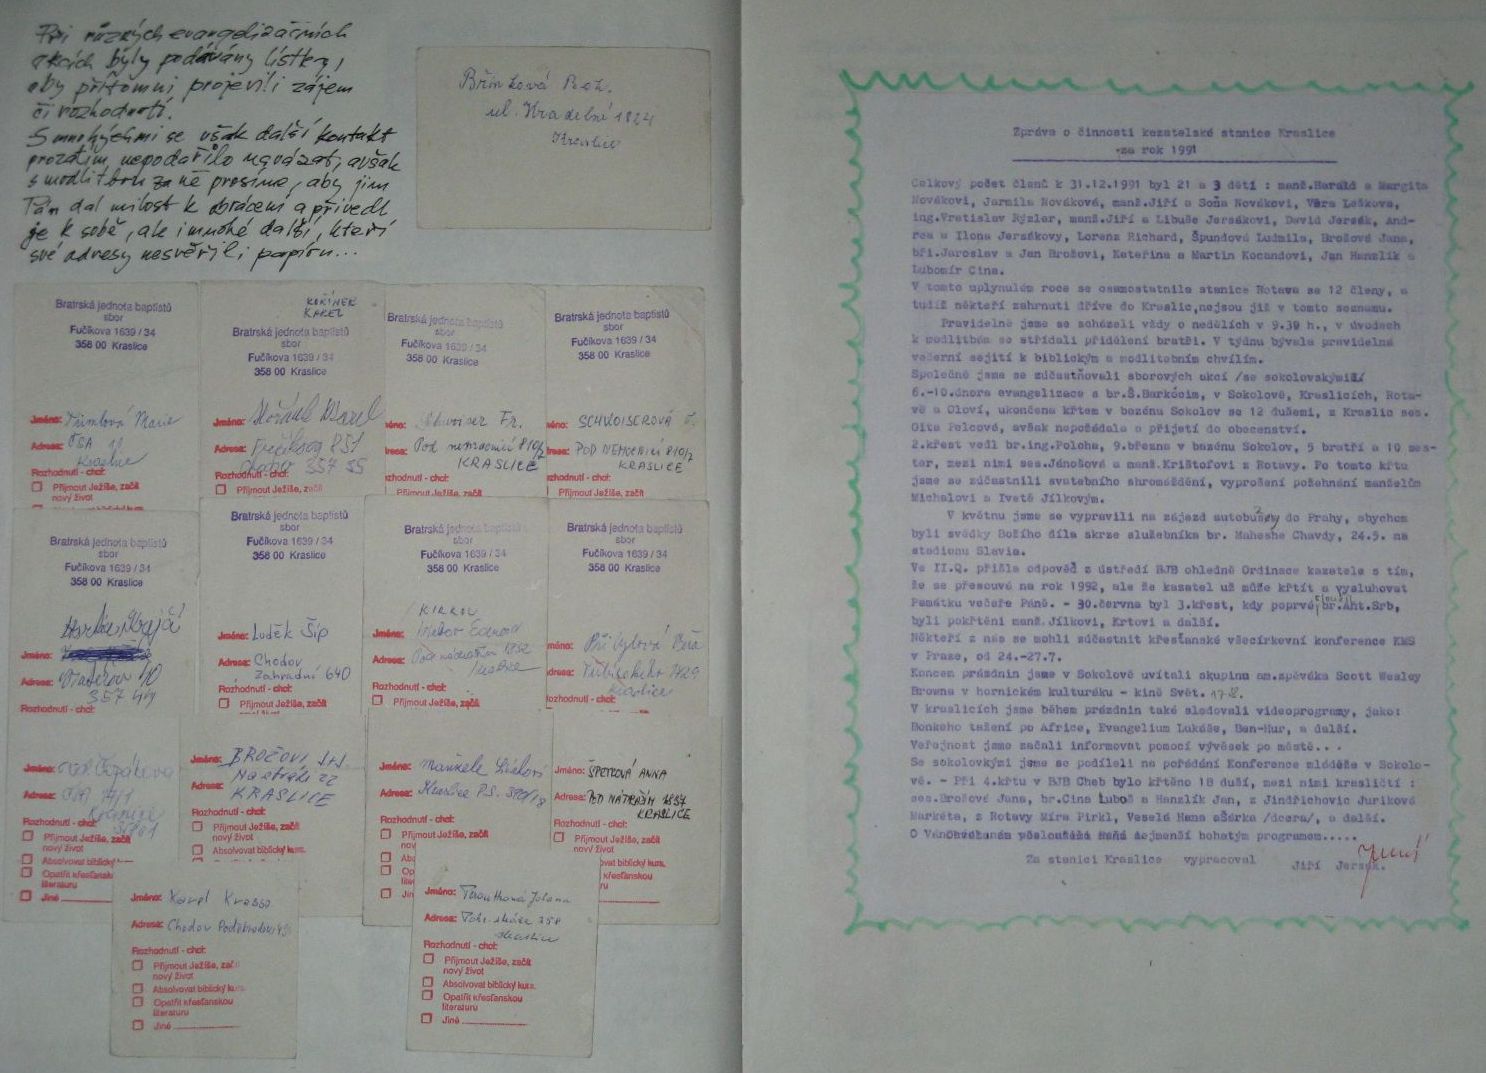 Při různých evangelizačních
akcích byly podávány lístky,
aby přítomní projevili zájem
či rozhodnutí.
S mnohými se však další kontakt
prozatím nepodařilo navázat, avšak
s modlitbou za ně prosíme, aby jim
Pán dal milost k obrácení a přivedl
je k sobě, ale i mnohé další, kteří
své adresy nesvěřili papíru...
ul. Hradební 1824
Kraslice
Bratrská jednota baptistů
sbor
Fučíkova 1639 / 34
358 00 Kraslice
Jméno:
Marie
Adresa: ČSA
Kraslice
Rozhodnutí - chci:
Přijmout Ježíše, začít
nový život
KOŘÍNEK
KAREL
Bratrská jednota baptistů
sbor
Fučíkova 1639 / 34
358 00 Kraslice
Jméno:
Adresa:
Rozhodnutí - chci:
Přijmout Ježíše, začít
Bratrská jednota baptistů
sbor
Fučíkova 1639 / 34
358 00 Kraslice
Fr.
Pod nemocnicí 810/2
KRASLICE
Rozhodnutí - chci:
Přijmout Ježíše, začít
Bratrská jednota baptistů
sbor
Fučíkova 1639 / 34
358 00 Kraslice
SCHVOISEROVÁ
POD NEMOCNICÍ 810/2
KRASLICE
Rozhodnutí - chci:
Přijmout Ježíše, začít
Bratrská jednota baptistů
sbor
Fučíkova 1639 / 34
358 00 Kraslice
Jméno:
Adresa:
Rozhodnutí - chci:
Bratrská jednota baptistů
sbor
Fučíkova 1639 / 34
358 00 Kraslice
Jméno: Luděk Šíp
Adresa: Chodov
Zahradní 640
Rozhodnutí - chci:
Přijmout Ježíše, začít
Bratrská jednota baptistů
sbor
Fučíkova 1639 / 34
358 00 Kraslice
Jméno:
Adresa:
Kraslice
Rozhodnutí - chci:
Přijmout Ježíše, začít
Bratrská jednota baptistů
sbor
Fučíkova 1639 / 34
358 00 Kraslice
Kraslice
Rozhodnutí - chci:
Přijmout Ježíše, začít
Jméno:
Adresa:
Kraslice
Rozhodnutí - chci:
Přijmout Ježíše, začít
nový život
Absolvovat biblický kurs
Opatřit křesťanskou
literaturu
Jiné
Jméno: BROŽOVI
Adresa: Na stráni 22
KRASLICE
Rozhodnutí - chci:
Přijmout Ježíše, začít
nový život
Absolvovat biblický kurs.
Jméno: manželé
Adresa: Kraslice
Rozhodnutí - chci:
Přijmout Ježíše, začít
nový život
Jméno: ANNA
Adresa: POD NÁDRAŽÍM 1857
KRASLICE
Rozhodnutí - chci:
Přijmout Ježíše, začít
nový život
Absolvovat biblický kurs.
Opatřit křesťanskou
Jméno: Karel Krasso
Adresa: Chodov
Rozhodnutí - chci:
Přijmout Ježíše, začít
nový život
Absolvovat biblický kurs.
Opatřit křesťanskou
literaturu
Jiné
Jméno: Jolana
Adresa:
Kraslice
Rozhodnutí - chci:
Přijmout Ježíše, začít
nový život
Absolvovat biblický kurs.
Opatřit křesťanskou
literaturu
Jiné
Zpráva o činnosti kazatelské stanice Kraslice
za rok 1991
Celkový počet členů k 31.12.1991 byl 21 a 3 děti : manž.Harald a Margita
Novákovi, Jarmila Nováková, manž.Jiří a Soňa Novákovi, Věra Lešková,
ing.Vratislav Rýzler, manž.Jiří a Libuše Jersákovi, David Jersák, And-
rea a Ilona Jersákovy, Lorenz Richard, Špundová Ludmila, Brožová Jana,
bři.Jaroslav a Jan Brožovi, Kateřina a Martin Kocandovi, Jan Hanzlík a
Lubomír Cina.
V tomto uplynulém roce se osamostatnila stanice Rotava se 12 členy, a
tudíž někteří zahrnutí dříve do Kraslic,nejsou již v tomto seznamu.
Pravidelně jsme se scházeli vždy o nedělích v 9.30 h., v úvodech
k modlitbám se střídali přidělení bratři. V týdnu bývala pravidelná
večerní sejití k biblickým a modlitebním chvílím.
Společně jsme se zúčastňovali sborových akcí /se sokolovskými/
6.-10.února evangelizace s br.Š.Barkócim, v Sokolově, Kraslicích, Rota-
vě a Oloví, ukončena křtem v bazénu Sokolov se 12 dušemi, z Kraslic ses.
Gita Polcová, avšak nepožádala o přijetí do obecenství.
2.křest vedl br.ing.Poloha, 9.března v bazénu Sokolov, 5 bratří a 10 ses-
ter, mezi nimi ses.Jánošová a manž.Krištofovi z Rotavy. Po tomto křtu
jsme se zúčastnili svatebního shromáždění, vyprošení požehnání manželům
Michalovi a Ivetě Jílkovým.
V květnu jsme se vypravili na zájezd autobusy do Prahy, abychom
byli svědky Božího díla skrze služebníka br. Maheshe Chavdy, 24.5. na
stadionu Slavia.
Ve II.Q. přišla odpověď z ústředí BJB ohledně Ordinace kazatele s tím,
že se přesouvá na rok 1992, ale že kazatel už může křtít a vysluhovat
Památku večeře Páně. - 30.června byl 3.křest, kdy poprvé sloužil br.Ant.Srb,
byli pokřtěni manž.Jílkovi, Krtovi a další.
Někteří z nás se mohli zúčastnit křesťanské všecírkevní konference KMS
v Praze, od 24.-27.7.
Koncem prázdnin jsme v Sokolově uvítali skupinu am.zpěváka Scott Wesley
Browna v hornickém kulturáku - kině Svět. 17.8.
V kraslicích jsme během prázdnin také sledovali videoprogramy, jako:
Bonkeho tažení po Africe, Evangelium Lukáše, Ben-Hur, a další.
Veřejnost jsme začali informovat pomocí vývěsek po městě...
Se sokolovskými jsme se podíleli na pořádání Konference mládeže v Sokolo-
vě. - Při 4.křtu v BJB Cheb bylo křtěno 18 duší, mezi nimi krasličtí :
ses.Brožová Jana, br.Cina Luboš a Hanzlík Jan, z Jindřichovic Juríková
Markéta, z Rotavy Míra Pirkl, Veselá Hana a Šárka /dcera/, a další.
O Vánocích
bohatým programem.....
Za stanici Kraslice vypracoval
Jiří Jersák.